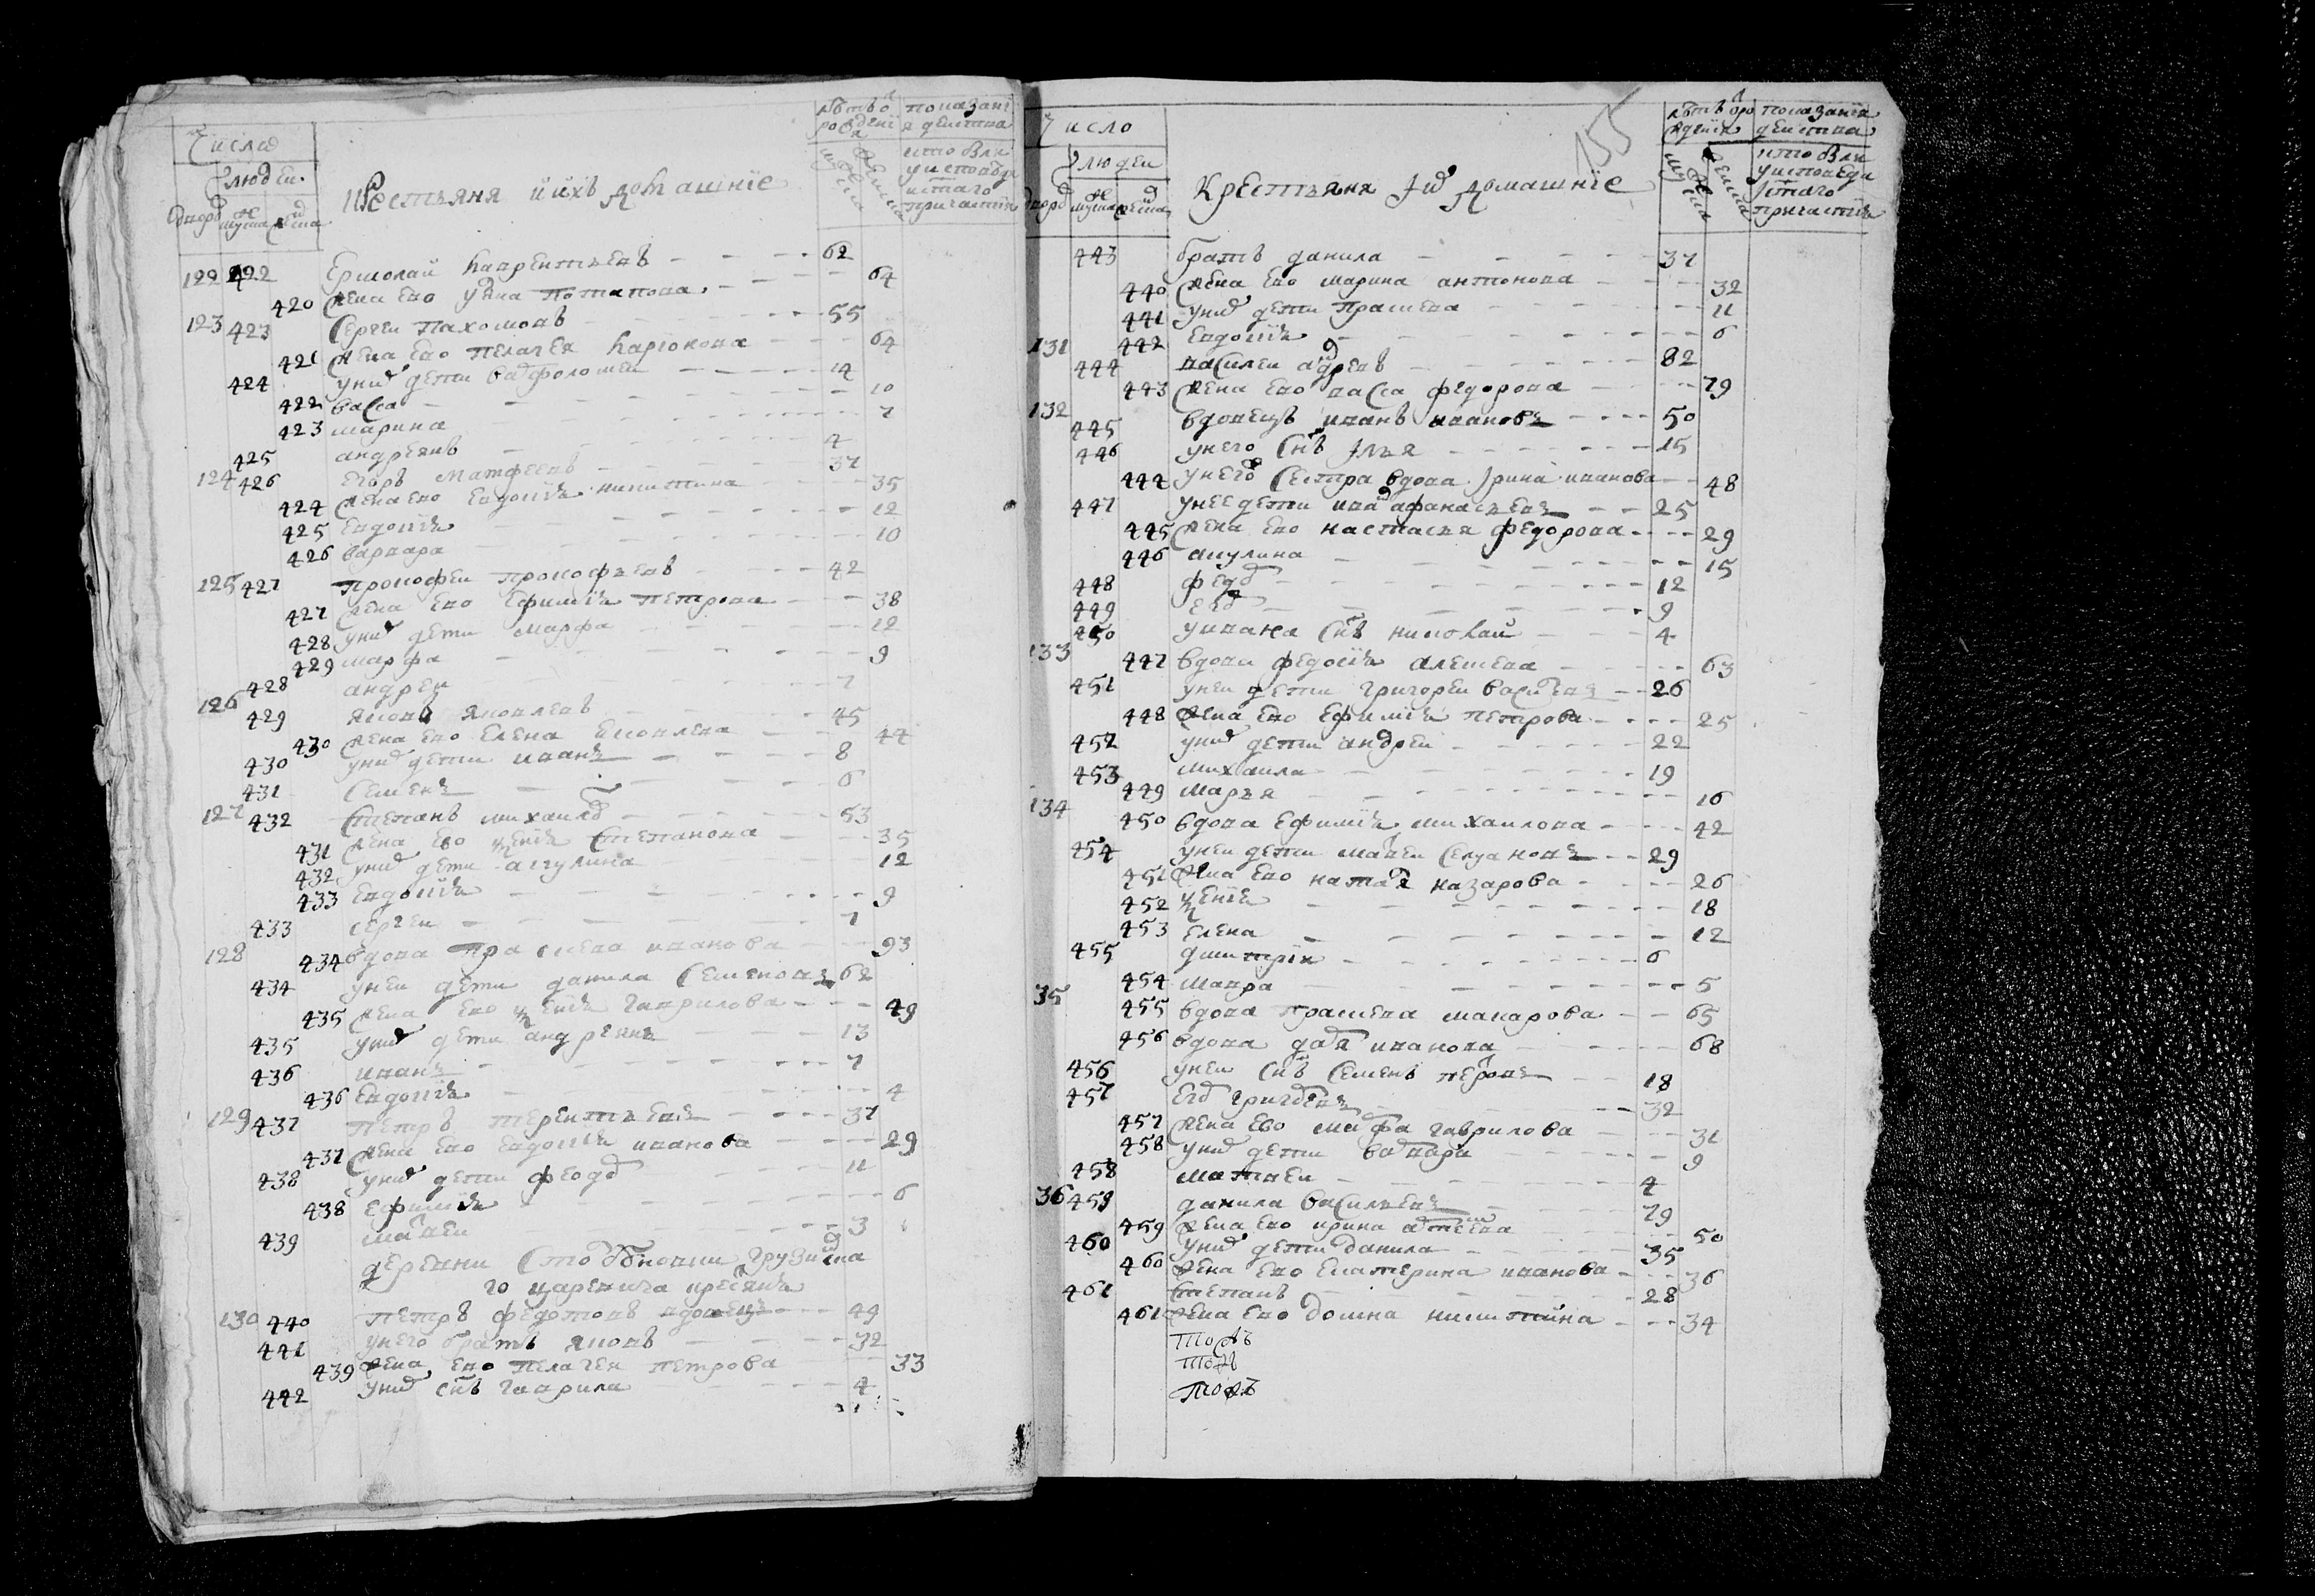 Число
людеи
Крестьяня и ихъ домашніе
122 422 Ермолаи Лаврентьевъ 62
420 жена ево улиа Потапова 64
123 423 Сергеи Пахомовъ 55
421 жена ево пелагея 64
424 уних дети варфоломеи 14
422 васса 10
423 марина 7
425 андреянъ 4
124 426 Егоръ Матфеевъ 37
424 жена ево евдокия никитина 35
425 евдокия 12
426 варвара 10
125 427 прокофеи прокофьевъ 42
427 жена ево ефимия петрова 38
428 уних дети марфа 12
429 марфа 9
428 андреи 7
126 429 яковъ яковлевъ 45
430 жена ево елена яковлева 44
430 уних дети иванъ 8
431 семенъ 6
127 432 степанъ михаилов 53
431 жена ево ксения степанова 35
432 уних дети акулина 12
433 евдокия 9
433 сергеи 7
128 434 вдова прасковя иванова 93
434 унеи дети данила семеновъ 62
435 жена ево ксения гаврилова 49
435 уних дети андреянъ 13
436 иванъ 7
436 евдокия 4
129 437 петръ терентьевъ 37
437 жена ево евдокия иванова 29
438 уних дети феодор 11
438 ефимия 6
439 матвеи 3
деревни грузинска
го царевича крестьянъ
130 440 петръ федотовъ вдовецъ 49
441 унего братъ яковъ 32
439 жена ево пелагея петрова 33
442 уних снъ гаврила 4
155
Число
людеи
Крестьяня их домашніе
443 братъ данила 37
440 жена ево марина антонова 32
441 уних дети праскева 11
442 евдокия 6
131 444 василеи андревъ 82
443 жена ево васса федорова 79
132 445 вдовецъ иванъ ивановъ 50
446 унего снъ илья 15
444 унего сестра вдова ирина иванова 48
447 унее дети иван афанасьевъ 25
445 жена ево настасья федорова 29
446 акулина 15
448 федор 12
449 егор 9
450 уивана снъ николаи 4
133 447 вдова федосия алексева 63
451 унеи дети григореи васильевъ 26
448 жена ево ефимия петрова 25
452 уних дети андреи 22
453 михаила 19
449 марья 16
134 450 вдова ефимия михаилова 42
454 унеи дети матвеи селуановъ 29
451 жена ево наталя назарова 26
452 ксения 18
453 елена 12
455 дмитрии 6
454 мавра 5
35 455 вдова праскева макарова 65
456 вдова дарья иванова 68
456 унеи снъ семенъ петровъ 18
457 егор григоревъ 32
457 жена ево марфа гаврилова 31
458 уних дети варвара 9
458 матвеи 4
36 459 данила васильевъ 79
459 жена ево ирина 50
460 уних дети данила 35
460 жена ево екатерина иванова 36
461 степанъ 28
461 жена ево домна никитина 34
тожъ
тожъ
тожъ